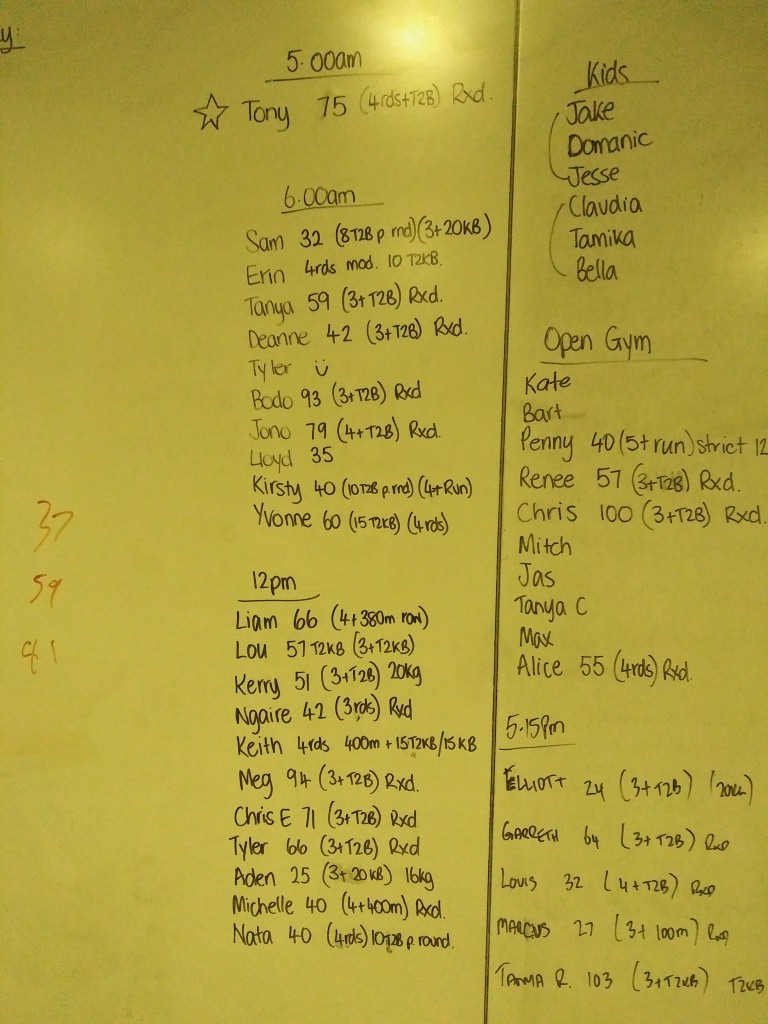 y:
5.00am
☆ Tony 75 (4rds+T2B) Rxd.
6.00am
Sam 32 (8T2B p. rnd)(3+20KB)
Erin 4rds mod. 10 T2KB.
Tanya 59 (3+T2B) Rxd.
Deanne 42 (3+T2B) Rxd.
Tyler
Bodo 93 (3+T2B) Rxd
Jono 79 (4+T2B) Rxd.
Lloyd 35
Kirsty 40 (10T2B p.rnd) (4+Run)
Yvonne 60 (15T2KB) (4rds)
37
59
81
12pm
Liam 66 (4+380m row)
Lou 57 T2KB (3+T2KB)
Kerry 51 (3+T2B) 20kg
Ngaire 42 (3rds) Rxd
Keith 4rds 400m + 15T2KB/15KB
Meg 94 (3+T2B) Rxd.
Chris E 71 (3+T2B) Rxd
Tyler 66 (3+T2B) Rxd
Aden 25 (3+20KB) 16kg
Michelle 40 (4+400m) Rxd.
Nata 40 (4rds) 10T2B p. round.
Kids
Jake
Domanic
Jesse
Claudia
Tamika
Bella
Open Gym
Kate
Bart
Penny 40 (5+run) strict 12
Renee 57 (3+T2B) Rxd.
Chris 100 (3+T2B) Rxd.
Mitch
Jas
Tanya C
Max
Alice 55 (4rds) Rxd.
5.15pm
ELLIOTT 24 (3+T2B)
GARRETH 64 (3+T2B) RXD
LOUIS 32 (4+T2B) RXD
MARCUS 27 (3+100m) RXD
R. 103 (3+T2KB) T2KB